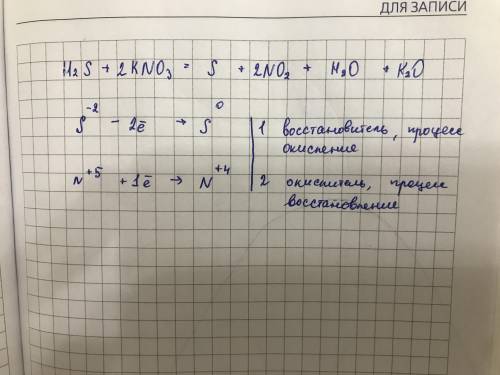 ДЛЯ ЗАПИСИ
H₂S + 2KNO₃ = S + 2NO₂ + H₂O + K₂O
S⁻² - 2ē → S⁰ | 1 восстановитель, процесс
окисление
N⁺⁵ + 1ē → N⁺⁴ | 2 окислитель, процесс
восстановление